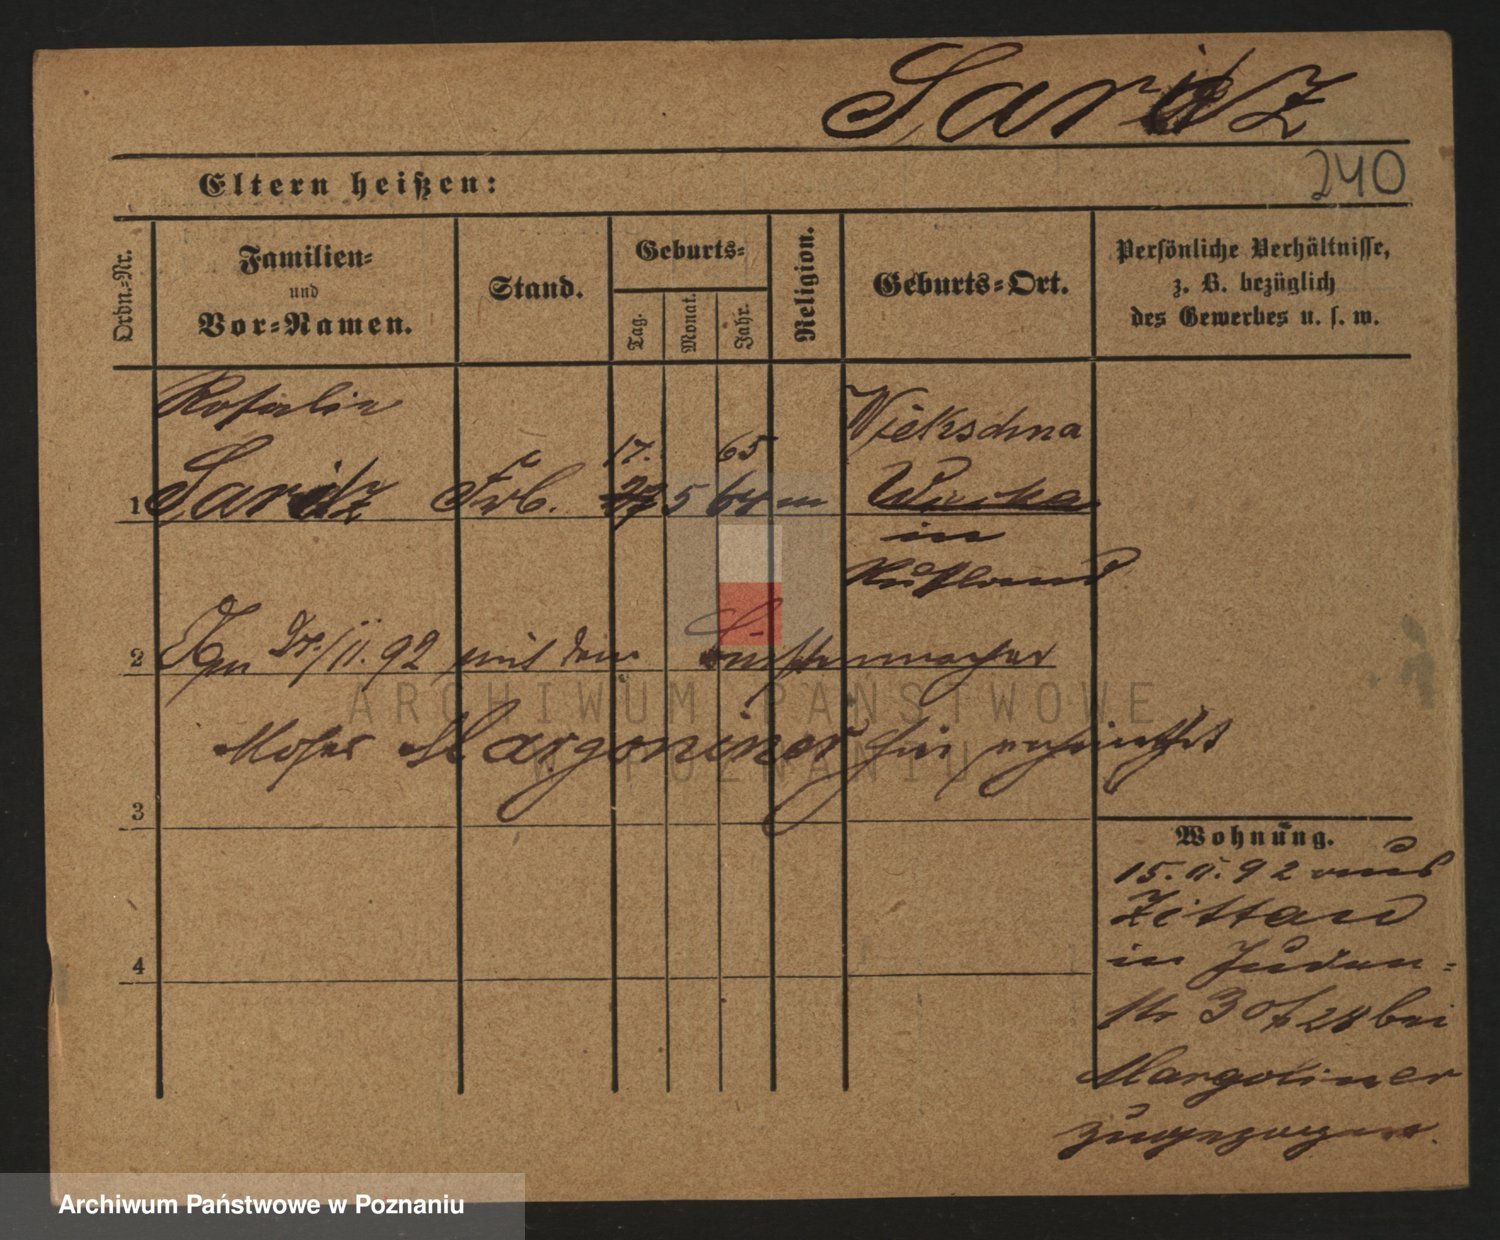 Saritz
240
Eltern heißen:
Ordn.-Nr.
Familien-
und
Vor-Namen.
Stand.
Geburts-
Tag.
Monat.
Jahr.
Religion.
Geburts-Ort.
Persönliche Verhältnisse,
z. B. bezüglich
des Gewerbes u. s. w.
Rosalie
Wiekschna
17. 65
1 Saritz 27 5 64 m
in
Rußland
2 11.92 mit dem macher
ARCHIWUM PAŃSTWOWE
Moses Margoniner hier
W POZNANIU
3
Wohnung.
15.11.92 aus
Zittau
4
in Juden-
str 30 bei
Margoniner
zugezogen.
Archiwum Państwowe w Poznaniu